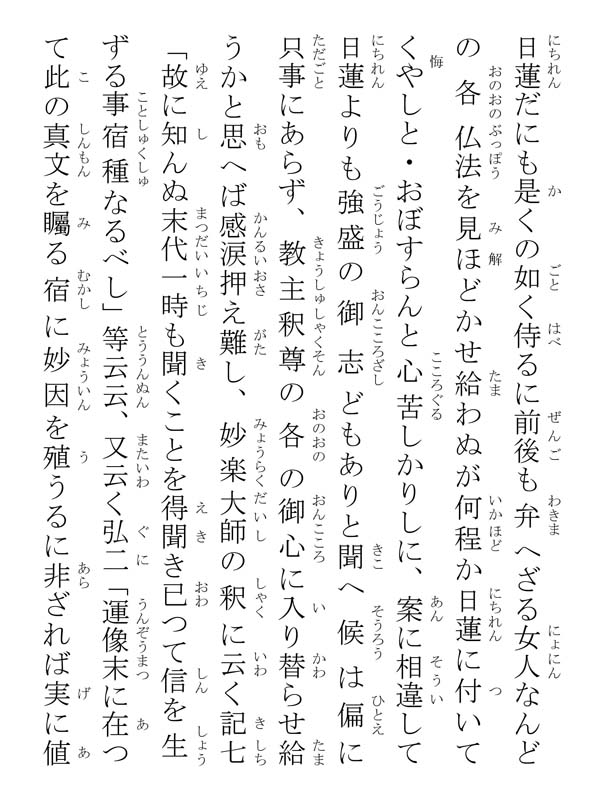 日蓮だにも是くの如く侍るに前後も弁へざる女人なんど
の各仏法を見ほどかせ給わぬが何程か日蓮に付いて
くやしと・おぼすらんと心苦しかりしに、案に相違して
日蓮よりも強盛の御志どもありと聞へ候は偏に
只事にあらず、教主釈尊の各の御心に入り替らせ給
うかと思へば感涙押え難し、妙楽大師の釈に云く記七
「故に知んぬ末代一時も聞くことを得聞き已つて信を生
ずる事宿種なるべし」等云云、又云く弘二「運像末に在つ
て此の真文を矚る宿に妙因を殖うるに非ざれば実に値